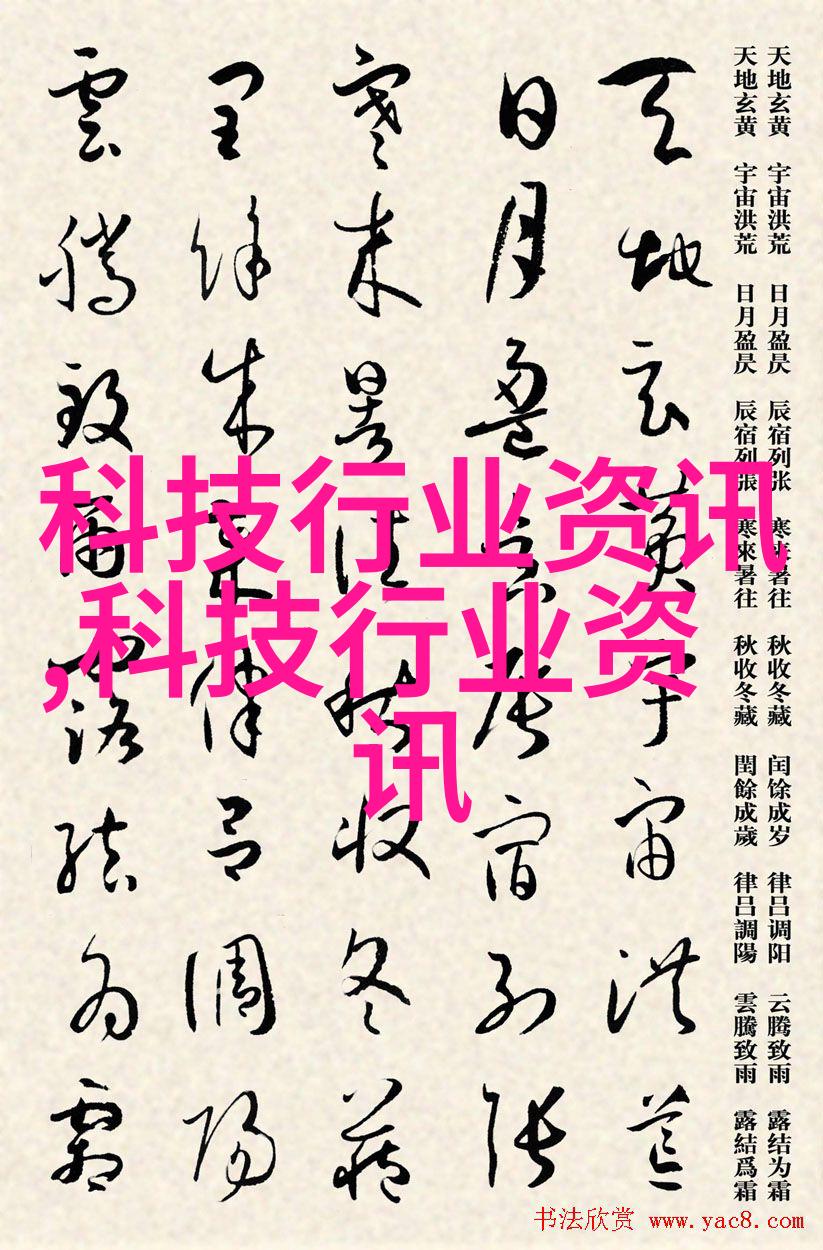 天地玄黄 宇宙洪荒 日月盈昃 辰宿列张 寒来暑往 秋收冬藏 闰馀成岁 律吕调阳 云腾致雨 露结为霜
天地玄黄 宇宙洪荒 日月盈昃 辰宿列張 寒來暑往 秋收冬藏 閏餘成歲 律呂調陽 雲騰致雨 露結爲霜
天地玄黄宇宙洪荒
日月盈昃辰宿列張
寒来暑往秋收冬藏
閏餘成歲律呂調陽
雲騰致雨露結為霜
科技行业资讯
,科技行业资
讯
书法欣赏 www.yac8.com